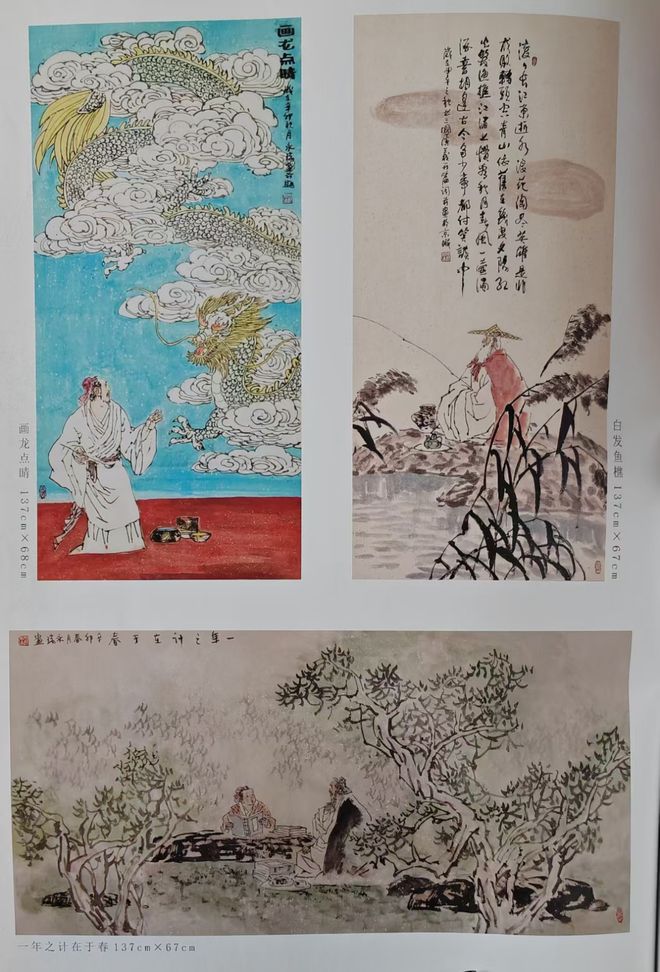 画龙点睛
岁在辛卯秋月
画龙点睛 137cm×68cm
滚々长江東逝水浪花淘尽英雄是非
成敗轉頭空青山依舊在幾度夕陽红
白髮渔樵江渚上惯看秋月春風一壶濁
酒喜相逢古今多少事都付笑談中
白发鱼樵 137cm×67cm
一年之计在于春 辛卯春月永瑞画
一年之计在于春 137cm×67cm